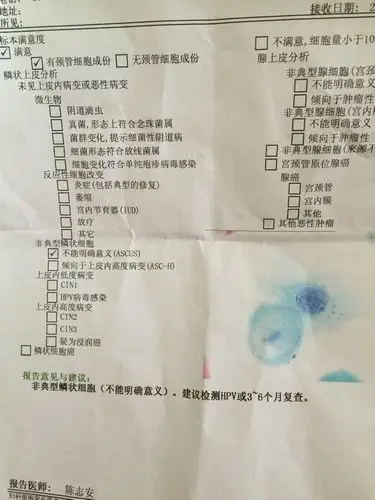 地址:
接收日期: 2
所见:
标本满意度
满意
有颈管细胞成份 无颈管细胞成份
鳞状上皮分析
未见上皮内病变或恶性病变
微生物
阴道滴虫
真菌,形态上符合念珠菌属
菌群变化,提示细菌性阴道病
细菌形态符合放线菌属
细胞变化符合单纯疱疹病毒感染
反应性细胞改变
炎症(包括典型的修复)
萎缩
宫内节育器(IUD)
放疗
其它
非典型鳞状细胞
不能明确意义(ASCUS)
倾向于上皮内高度病变(ASC-H)
上皮内低度病变
CIN1
HPV病毒感染
上皮内高度病变
CIN2
CIN3
疑为浸润癌
鳞状细胞癌
不满意,细胞量小于10
腺上皮分析
非典型腺细胞(宫颈
不能明确意义
倾向于肿瘤性
非典型腺细胞(宫内
不能明确意义
倾向于肿瘤性
非典型腺细胞(来源不
宫颈管原位腺癌
腺癌
宫颈管
宫内膜
其他
其他恶性肿瘤
报告意见与建议:
非典型鳞状细胞(不能明确意义)。建议检测HPV或3~6个月复查。
报告医师: 陈志安